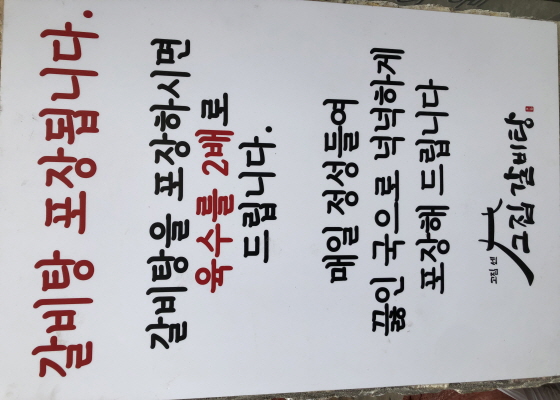 갈비탕 포장됩니다.
갈비탕을 포장하시면
육수를 2배로
드립니다.
매일 정성들여
끓인 국으로 넉넉하게
포장해 드립니다
고집 센
고집 갈비탕